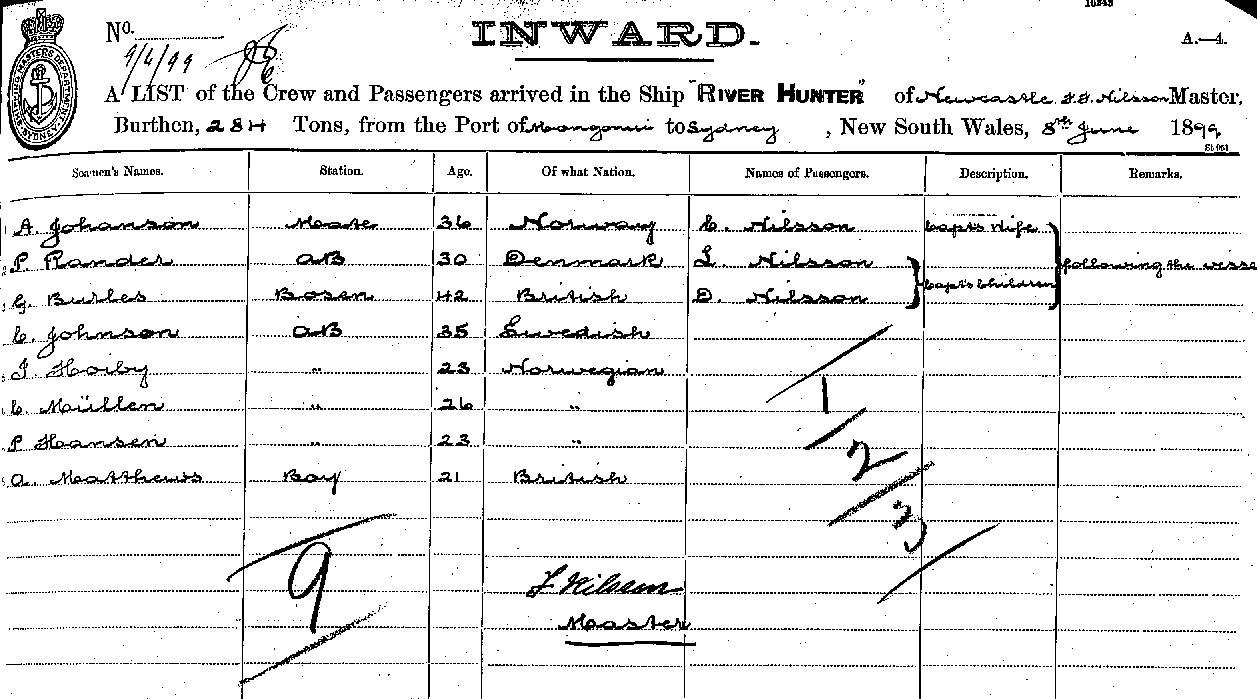 10243
No.
9/6/99
INWARD.
A.—4.
SHIPPING MASTERS DEPARTMENT SYDNEY
A LIST of the Crew and Passengers arrived in the Ship "RIVER HUNTER" of Newcastle. F.F. Nilsson Master,
Burthen, 284 Tons, from the Port of Mangonui to Sydney, New South Wales, 8th June 1899
Seamen's Names. Station. Age. Of what Nation. Names of Passengers. Description. Remarks.
A. Johanson Mate 36 Norway C. Nilsson Capt's Wife
P Rander AB 30 Denmark L. Nilsson following the vesse
G. Burles Bosen 42 British D. Nilsson Capt's Children
C. Johnson AB 35 Swedish
J Hoiby " 23 Norwegian
C. Müllen " 26 "
P Hansen " 23 "
A. Matthews Boy 21 British
1
2
3
9
F Nilsson
Master